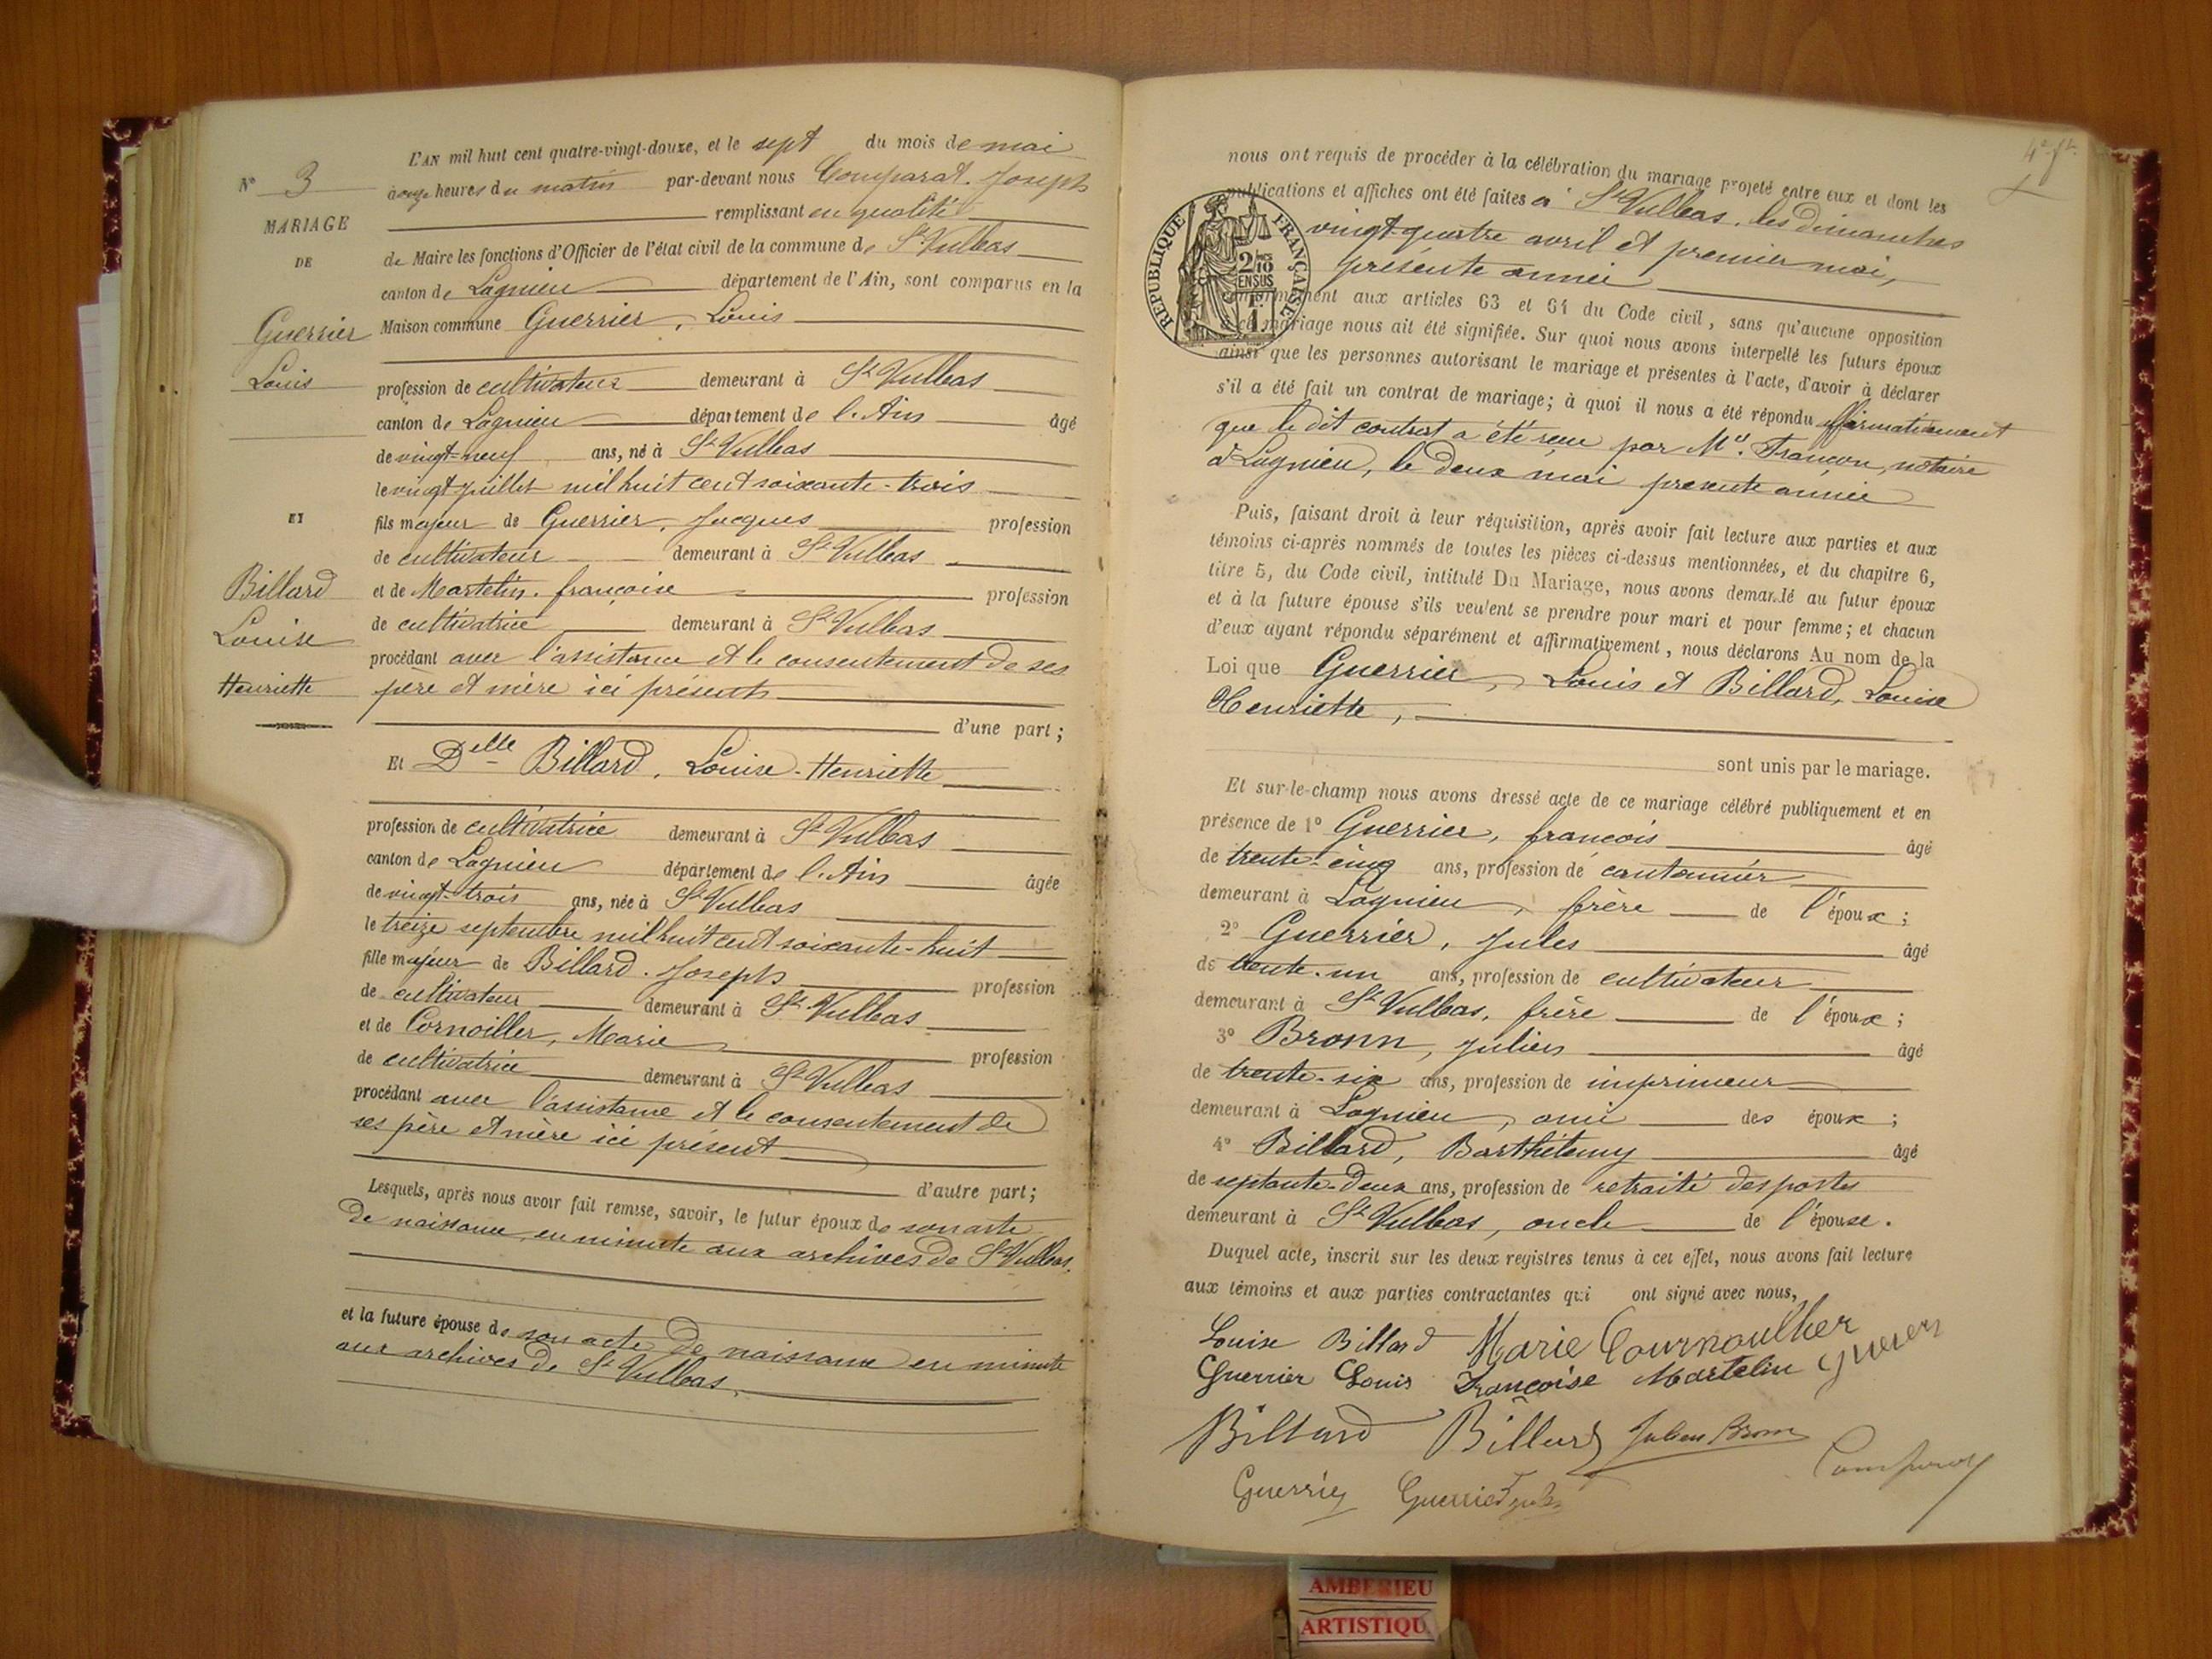 L'AN mil huit cent quatre-vingt-douze, et le sept du mois de mai
N° 3
à onze heures du matin par-devant nous Comparat, Joseph
MARIAGE
remplissant en qualité
DE
de Maire les fonctions d'Officier de l'état civil de la commune de St Vulbas
canton de Lagnieu département de l'Ain, sont comparus en la
Guerrier
Maison commune Guerrier, Louis
Louis
profession de cultivateur demeurant à St Vulbas
canton de Lagnieu département de l'Ain âgé
de vingt-neuf ans, né à St Vulbas
le vingt juillet mil huit cent soixante-trois
ET
fils majeur de Guerrier, Jacques profession
de cultivateur demeurant à St Vulbas
Billard
et de Martelin, françoise profession
Louise
de cultivatrice demeurant à St Vulbas
procédant avec l'assistance et le consentement de ses
Henriette
père et mère ici présents
d'une part;
Et Delle Billard, Louise-Henriette
profession de cultivatrice demeurant à St Vulbas
canton de Lagnieu département de l'Ain âgée
de vingt-trois ans, née à St Vulbas
le treize septembre mil huit cent soixante-huit
fille majeur de Billard, Joseph profession
de cultivateur demeurant à St Vulbas
et de Cornoiller, Marie profession
de cultivatrice demeurant à St Vulbas
procédant avec l'assistance et le consentement de
ses père et mère ici présent
d'autre part;
Lesquels, après nous avoir fait remise, savoir, le futur époux de son acte
de naissance en minute aux archives de St Vulbas,
et la future épouse de son acte de naissance en minute
aux archives de St Vulbas,
nous ont requis de procéder à la célébration du mariage projeté entre eux et dont les
publications et affiches ont été faites à St Vulbas, les dimanches
vingt-quatre avril et premier mai,
présente année
REPUBLIQUE FRANÇAISE
2/10
EN SUS
conformément aux articles 63 et 64 du Code civil, sans qu'aucune opposition
à ce mariage nous ait été signifiée. Sur quoi nous avons interpellé les futurs époux
ainsi que les personnes autorisant le mariage et présentes à l'acte, d'avoir à déclarer
s'il a été fait un contrat de mariage; à quoi il nous a été répondu affirmativement
que le dit contrat a été reçu par Me. Françon, notaire
à Lagnieu, le deux mai présente année
Puis, faisant droit à leur réquisition, après avoir fait lecture aux parties et aux
témoins ci-après nommés de toutes les pièces ci-dessus mentionnées, et du chapitre 6,
titre 5, du Code civil, intitulé Du Mariage, nous avons demandé au futur époux
et à la future épouse s'ils veulent se prendre pour mari et pour femme; et chacun
d'eux ayant répondu séparément et affirmativement, nous déclarons Au nom de la
Loi que Guerrier, Louis et Billard, Louise
Henriette,
sont unis par le mariage.
Et sur-le-champ nous avons dressé acte de ce mariage célébré publiquement et en
présence de 1° Guerrier, françois âgé
de trente-cinq ans, profession de cantonnier
demeurant à Lagnieu, frère de l'époux;
2° Guerrier, Jules âgé
de trente-un ans, profession de cultivateur
demeurant à St Vulbas, frère de l'époux;
3° Bronn, Julien âgé
de trente-six ans, profession de imprimeur
demeurant à Lagnieu, ami des époux;
4° Billard, Barthélemy âgé
de septante-deux ans, profession de retraité des postes
demeurant à St Vulbas, oncle de l'épouse.
Duquel acte, inscrit sur les deux registres tenus à cet effet, nous avons fait lecture
aux témoins et aux parties contractantes qui ont signé avec nous,
Louise Billard Marie Cournoulher
Guerrier Louis Françoise Martelin
Billard Billard Julien Bronn Comparat
Guerrier Guerrier Jules
AMBERIEU
ARTISTIQU